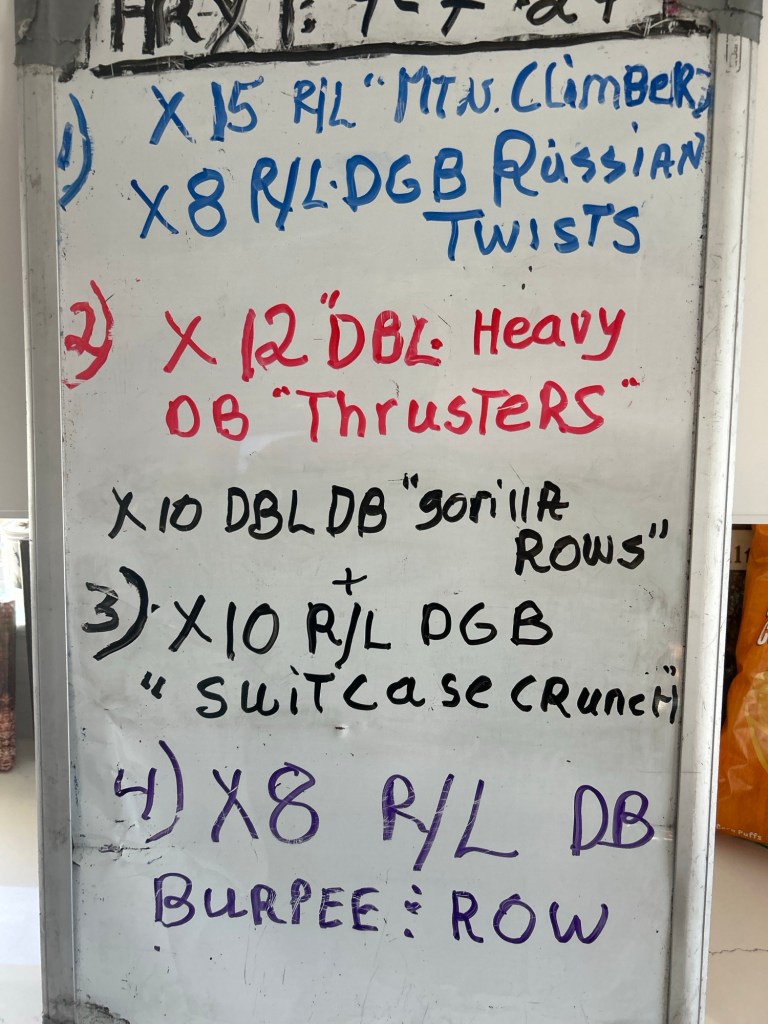 1) X 15 R/L "MTN. ClimBeRs
X8 R/L. DGB Russian
TWISTS
2) X 12 "DBL. Heavy
DB "ThrusTeRS"
X 10 DBL DB "gorilla
ROWS"
+
3) X10 R/L DGB
"SuiTcase CRuncH"
4) X8 R/L DB
BURPEE : ROW